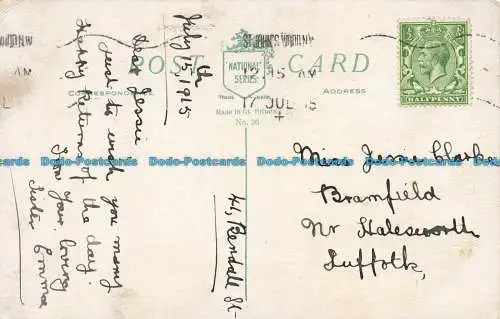 POST CARD
"NATIONAL"
SERIES
TRADE MARK
Made in Gt. Britain
No. 36
CORRESPONDENCE
ADDRESS
ST JOHNS WOOD. N.W
AM
17 JUL 15
HALFPENNY
July 15th, 1915
Dear Jessie
Just to wish you many
Happy Returns of the day.
From Your loving
Sister Emma
41, Bendall St-
Miss Jessie Clarke
Bramfield
Nr Halesworth
Suffolk,
Dodo-Postcards Dodo-Postcards Dodo-Postcards Dodo-Postcards Dodo-Postcards